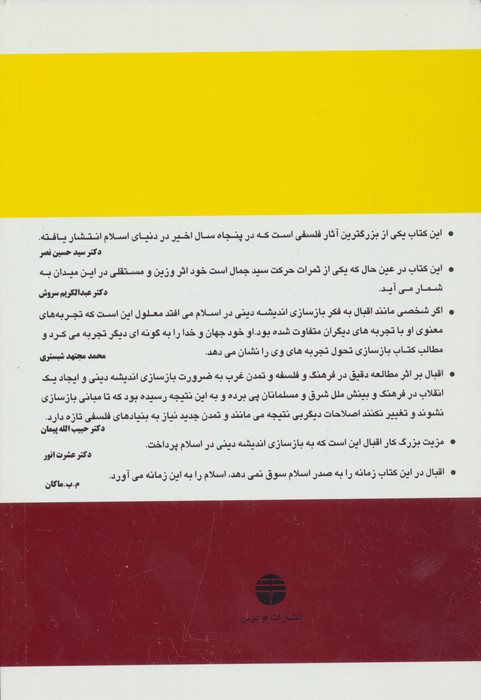 • این کتاب یکی از بزرگترین آثار فلسفی است که در پنجاه سال اخیر در دنیای اسلام انتشار یافته.
دکتر سید حسین نصر
• این کتاب در عین حال که یکی از ثمرات حرکت سید جمال است خود اثر وزین و مستقلی در این میدان به
شمار می آید.
دکتر عبدالکریم سروش
• اگر شخصی مانند اقبال به فکر بازسازی اندیشه دینی در اسلام می افتد معلول این است که تجربه‌های
معنوی او با تجربه های دیگران متفاوت شده بود.او خود جهان و خدا را به گونه ای دیگر تجربه می کرد و
مطالب کتاب بازسازی تحول تجربه های وی را نشان می دهد.
محمد مجتهد شبستری
• اقبال بر اثر مطالعه دقیق در فرهنگ و فلسفه و تمدن غرب به ضرورت بازسازی اندیشه دینی و ایجاد یک
انقلاب در فرهنگ و بینش ملل شرق و مسلمانان پی برده و به این نتیجه رسیده بود که تا مبانی بازسازی
نشوند و تغییر نکنند اصلاحات دیگربی نتیجه می مانند و تمدن جدید نیاز به بنیادهای فلسفی تازه دارد.
دکتر حبیب الله پیمان
• مزیت بزرگ کار اقبال این است که به بازسازی اندیشه دینی در اسلام پرداخت.
دکتر عشرت انور
• اقبال در این کتاب زمانه را به صدر اسلام سوق نمی دهد، اسلام را به این زمانه می آورد.
م.ب.ماکان
انتشارات فردوس